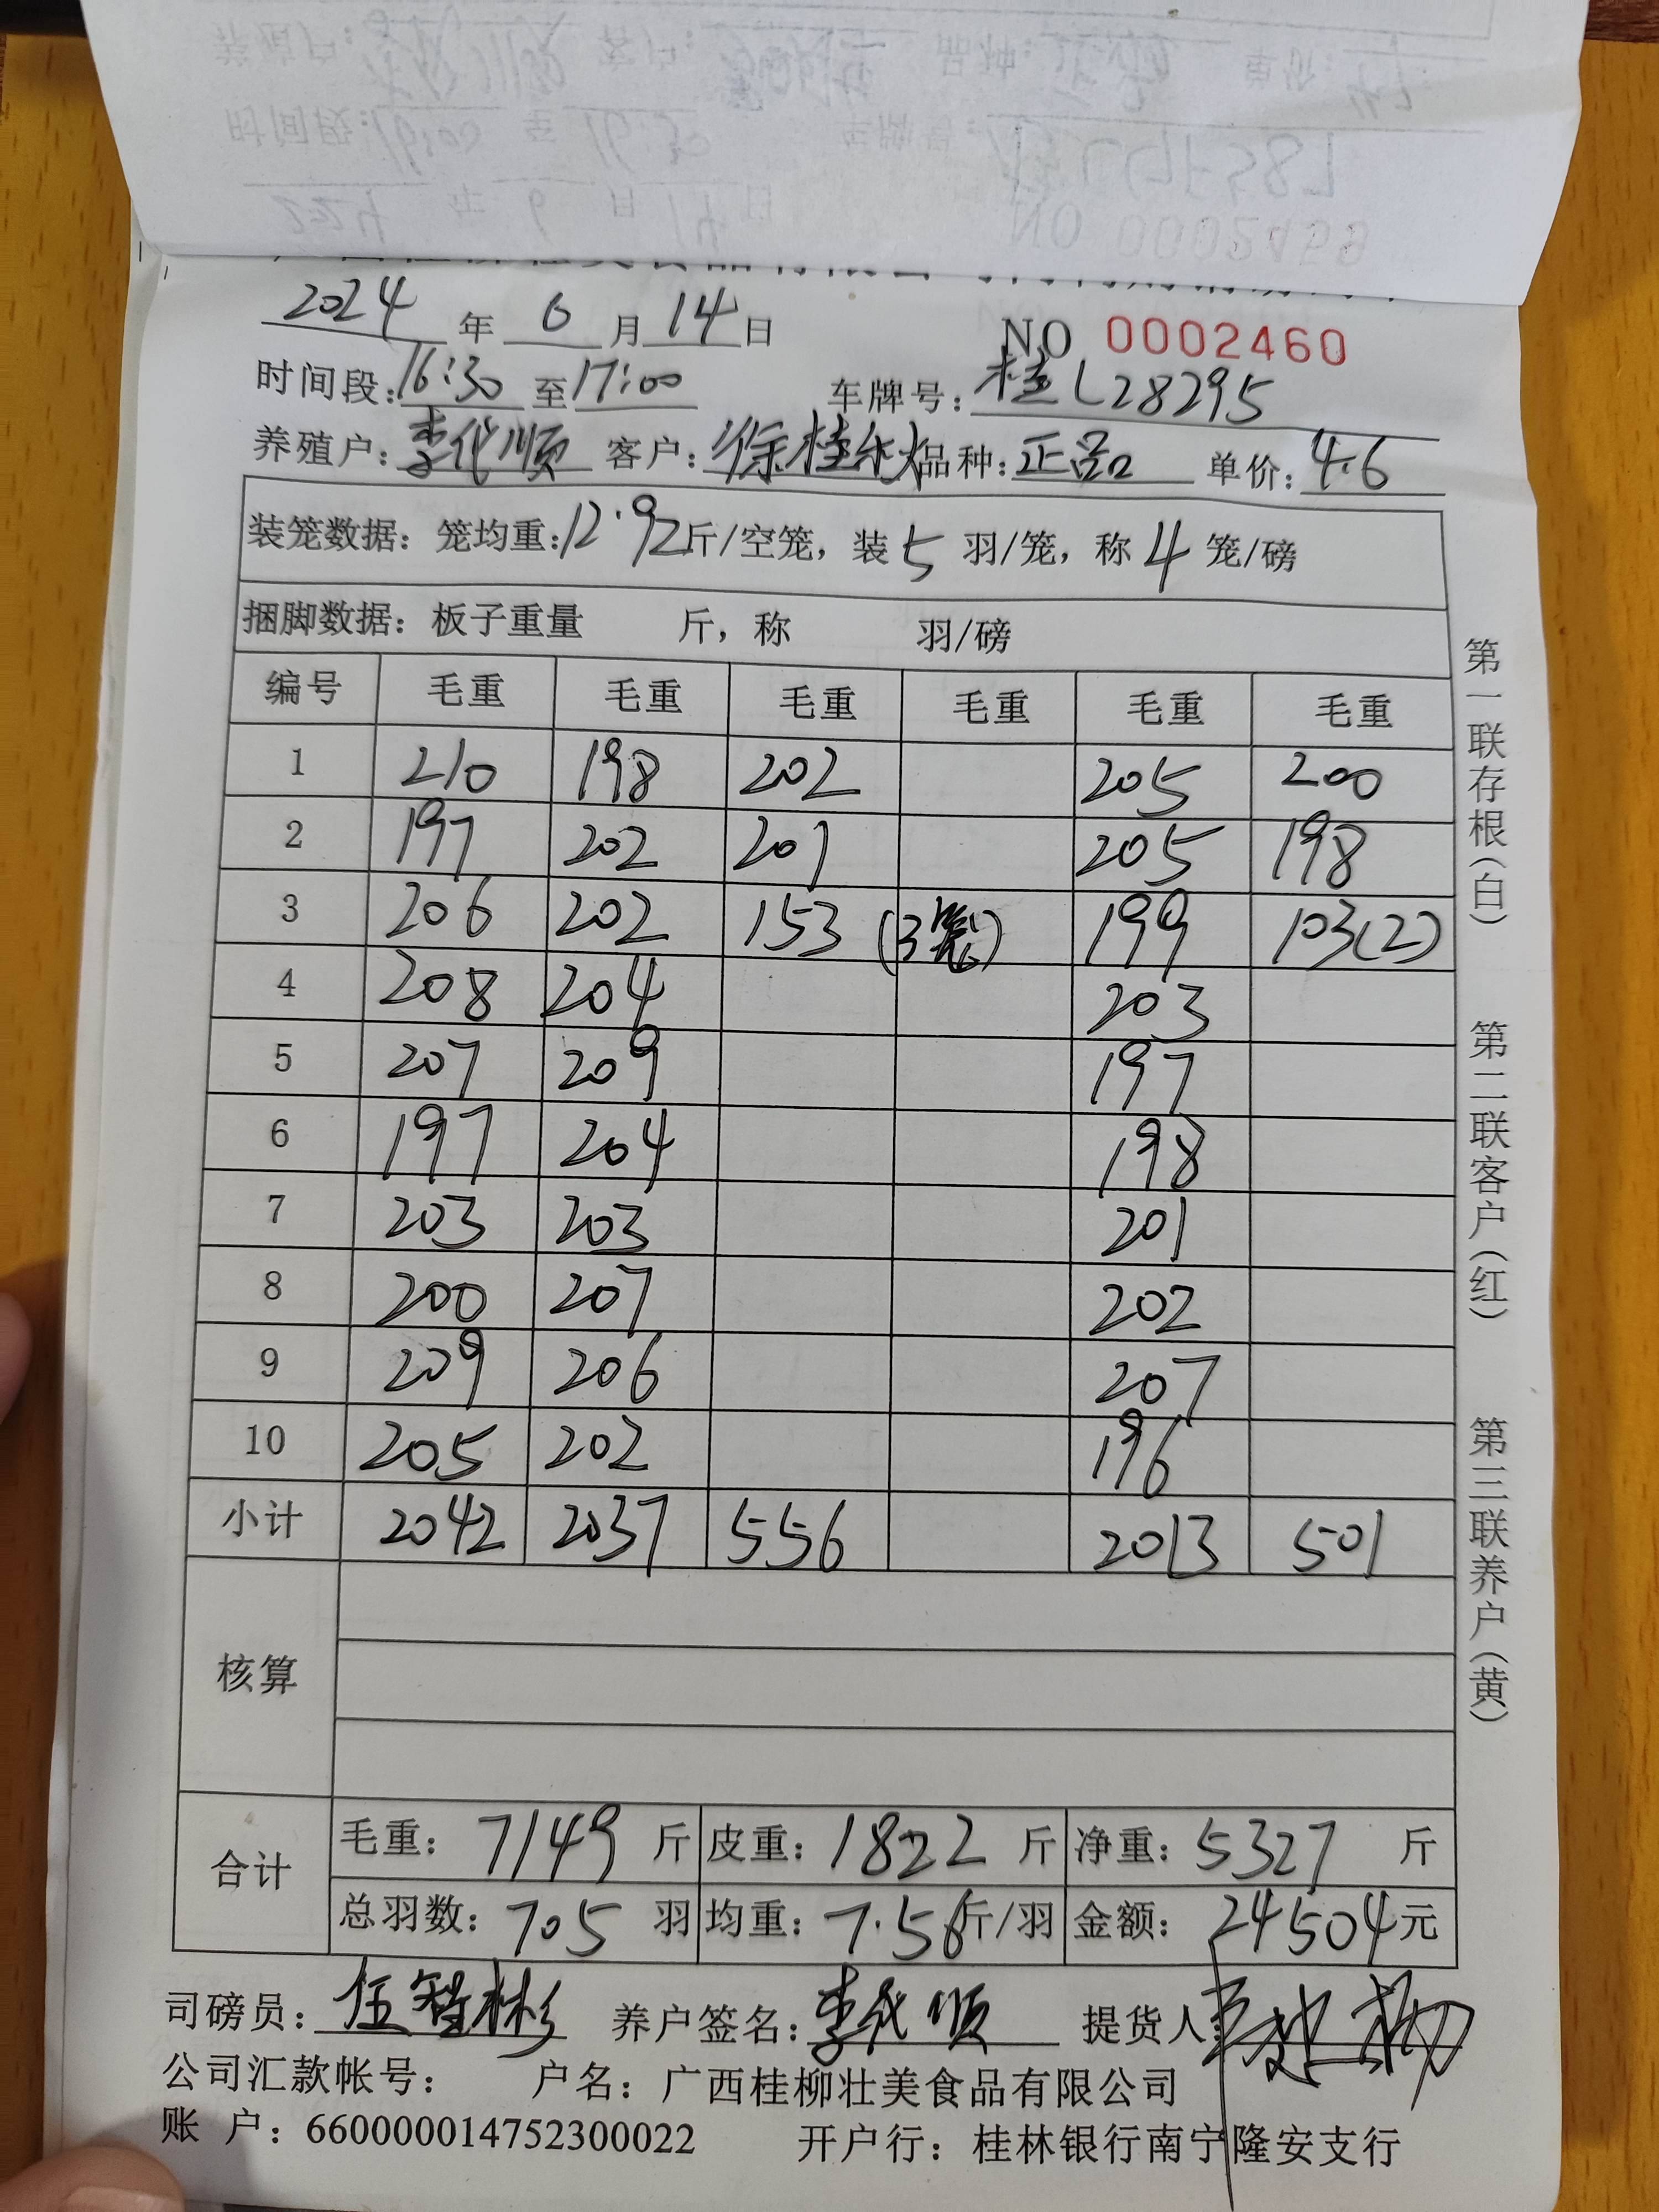 2024 年 6 月 14 日 NO 0002460
时间段:16:30 至 17:00 车牌号:桂L28295
养殖户:李代顺 客户:徐桂秋 品种:正品 单价:4.6
装笼数据:笼均重:12.92斤/空笼,装 5 羽/笼,称 4 笼/磅
捆脚数据:板子重量 斤,称 羽/磅
编号 毛重 毛重 毛重 毛重 毛重 毛重
1 210 198 202 205 200
2 197 202 201 205 198
3 206 202 153 (3笼) 199 103(2)
4 208 204 203
5 207 209 197
6 197 204 198
7 203 203 201
8 200 207 202
9 209 206 207
10 205 202 196
小计 2042 2037 556 2013 501
核算
合计 毛重:7149 斤 皮重:1822 斤 净重:5327 斤
总羽数:705 羽 均重:7.56斤/羽 金额:24504元
司磅员:伍智彬 养户签名:李代顺 提货人
公司汇款帐号: 户名:广西桂柳壮美食品有限公司
账 户:660000014752300022 开户行:桂林银行南宁隆安支行
第一联存根(白) 第二联客户(红) 第三联养户(黄)